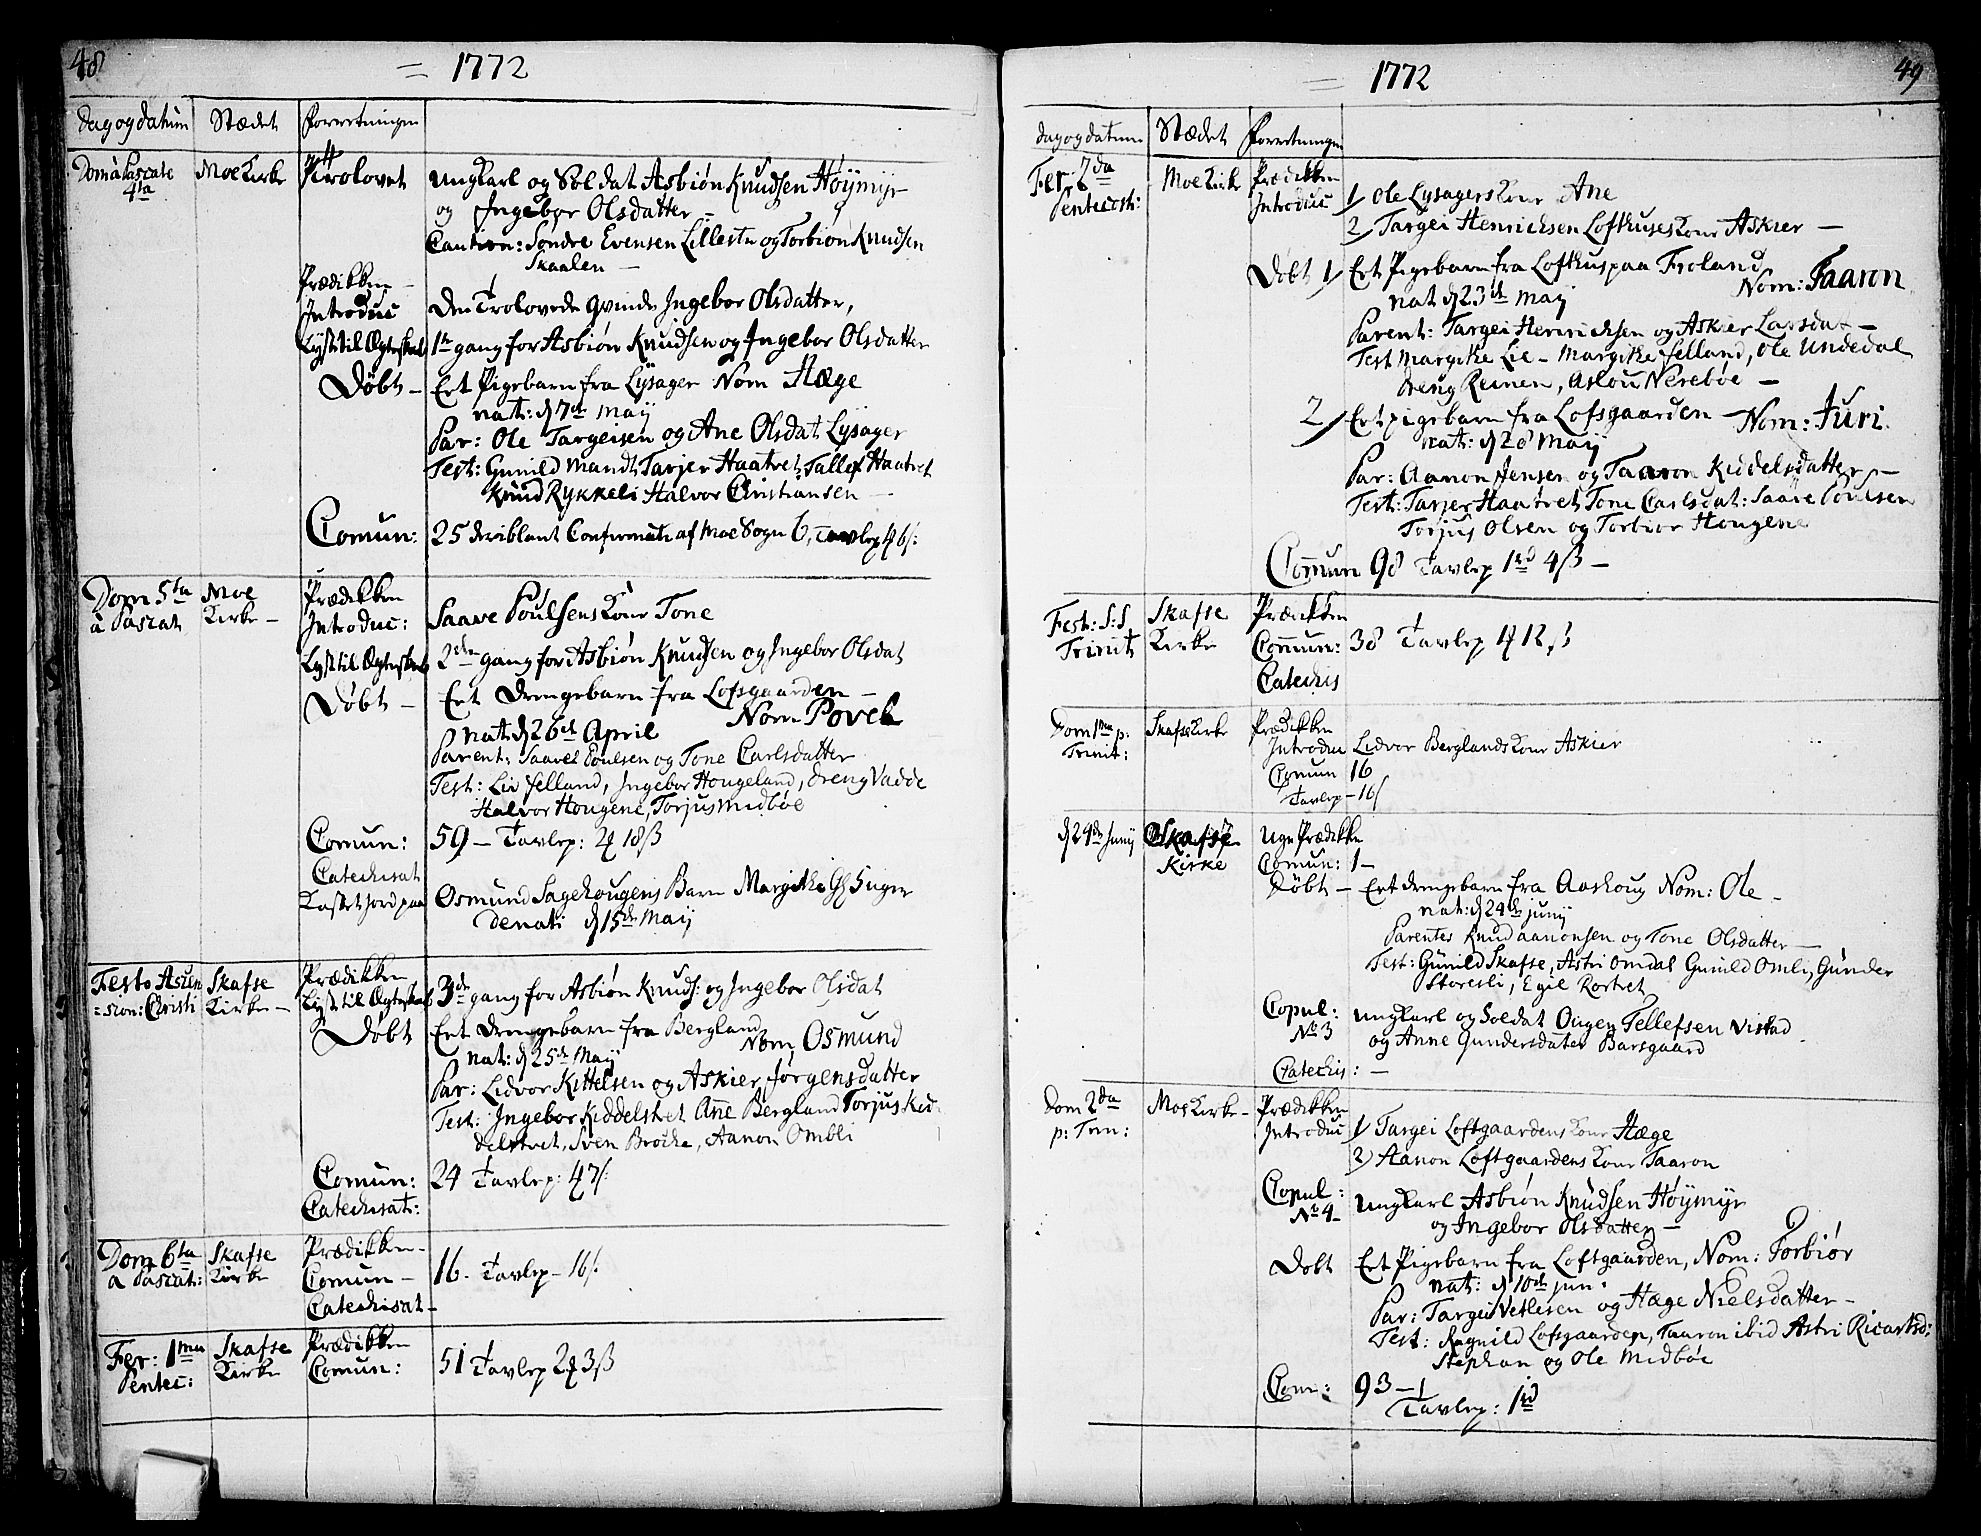 48
= 1772
Dag og datum Stædet Forretningen
Dom a Pascate Moe Kirke Trolovet Ungkarl og Soldat Asbiøn Knudsen Høymyr
4ta og Ingebor Olsdatter
Caution: Sondre Evensen Lillestu og Torbiøn Knudsen
Skaalen —
Prædikken —
Introduc Den Trolovede Qvinde Ingebor Olsdatter,
Lyst til Ægteskab 1te gang for Asbiøn Knudsen og Ingebor Olsdatter
Døbt — Eet Pigebarn fra Lysager Nom Hæge
nat: d 7de May
Par: Ole Targeisen og Ane Olsdat Lysager
Test: Gunild Mandt Tarjer Haatvet Tallef Haatvet
Knud Rykkeli Halvor Christiansen —
Comun: 25 deriblant Confirmati af Moe Sogn 6, Tavlep 46s:
Dom 5ta Moe Prædikken
a Pascat Kirke — Introduc: Saave Poulsens Kone Tone
Lyst til Ægteskab 2den gang for Asbiøn Knudsen og Ingebor Olsdat
Døbt — Eet Drengebarn fra Lofsgaarden —
Nom Povel
nat: d 26de April
Parent: Saave Poulsen og Tone Carlsdatter
Test: Liv felland, Ingebor Hougeland, Dreng Vadde
Halvor Hougene, Torjus Midbøe
Comun: 59 — Tavlep: 2 18ß
Catechisat
Kastet Jord paa Osmund Sagehougens Barn Margithe 5 uger
denati d 15de Maij
Festo Ascen Skafse Prædikken
=sion: Christi Kirke — Lyst til Ægteskab 3de gang for Asbiøn Knuds: og Ingebor Olsdat
Døbt Eet Drengebarn fra Bergland
Nom, Osmund
nat: d 25de Maij
Par: Lidvor Kittelsen og Askier Jørgensdatter
Test: Ingebor Kiddelstvet Anne Bergland Torjus Kid-
delstvet, Sven Brocke, Aanon Ombli
Comun: 24 Tavlep: 47s:
Catechisat:
Dom 6ta Skafse Prædikken —
a Pascat: Kirke Comun — 16. Tavlep — 16s:
Catechisat —
Fer: 1ma Skafse Prædikken
Pentec: Kirke Comun: 51 Tavlep 2 3ß
49
= 1772
Dag og datum Stædet Forretningen
Fer: 2da Moe Kirk Prædikken
Pentecost: Introduc 1/ Ole Lysagers Kone Ane
2/ Targei Henricksen Lofthuses Kone Askier —
Døbt 1/ Eet Pigebarn fra Lofthus paa Froland
Nom: Taaron
nat d 23de May
Parent: Targei Henricksen og Askier Larsdat —
Test Margithe Lie — Margithe felland, Ole Undedal
Dreng Reinen, Aslou Nerebøe —
2/ Eet pigebarn fra Lofsgaarden — Nom: Juri
nat: d 28 Maij
Par: Aanon Jensen og Taaron Kiddelsdatter —
Test: Tarjer Haatvet Tone Carlsdat: Saave Poulsen
Torjus Olsen og Torbiør Hougene
Comun 98 Tavlep 1rd 4ß —
Fest: S:S Skafse Prædikken
Trinit Kirke Comun: 38 Tavlep 4 12ß
Catechis
Dom 1ma p: Skafse Kirke Prædikken
Trinit: Introduc Lidvor Berglands Kone Askier
Comun 16
Tavlep — 16s
d 24de Junij Skafse Uge Prædikke
Kirke Comun: 1 —
Døbt — Eet drengebarn fra Aashoug Nom: Ole —
nat: d 24de junij
Parentes Knud Aanonsen og Tone Olsdatter —
Test: Gunild Skafse, Astri Omdal Gunild Omli, Gunder
Storesli, Egil Rortvet
Copul: Ungkarl og Soldat Ougen Tellefsen Vistad
No 3 og Anne Gundersdater Barsgaard
Catechis: —
Dom 2da Moe Kirke — Prædikken
p: Trin: Introduc 1/ Targei Loftgaardens Kone Hæge
2) Aanon Loftgaardens Kone Taaron
Copul: Ungkarl Asbiøn Knudsen Høymyr
No 4 — og Ingebor Olsdatter —
Døbt Eet Pigebarn fra Loftgaarden, Nom: Torbiør
nat: d 10de jun:
Par: Targei Vetlesen og Hæge Nielsdatter —
Test: Ragnild Lofsgaarden, Taaron ibid Astri Ricartsd:
Stephan og Ole Midbøe
Com: 93 —
Tavlep: 1rd